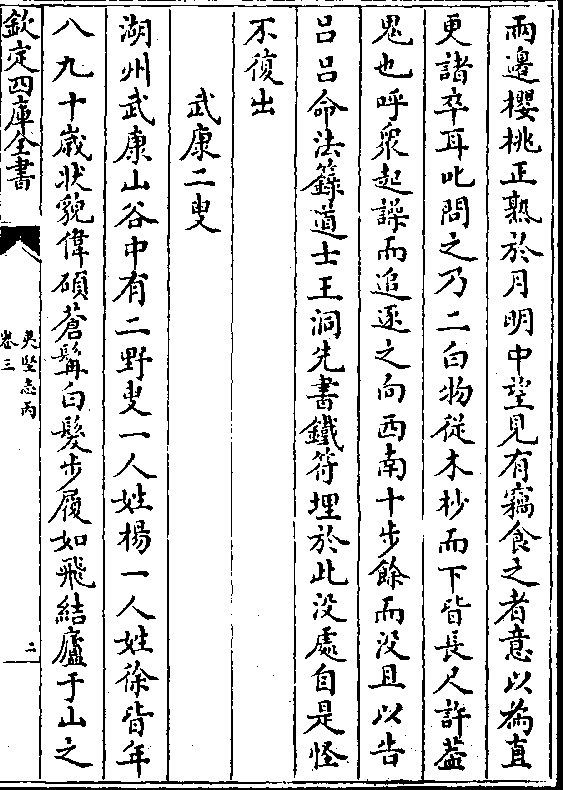 兩邊櫻桃正熟於月明中望見有竊食之者意以為直
更諸卒耳叱問之乃二白物從木杪而下皆長尺許葢
鬼也呼衆起譟而追逐之向西南十步餘而没且以告
吕吕命法籙道士王洞先書鐵符埋於此没處自是怪
不復出
武康二叟
湖州武康山谷中有二野叟一人姓楊一人姓徐皆年
八九十歳狀貌偉碩蒼髯白髮步履如飛結廬于山之
欽定四庫全書
夷堅志丙
卷三
二